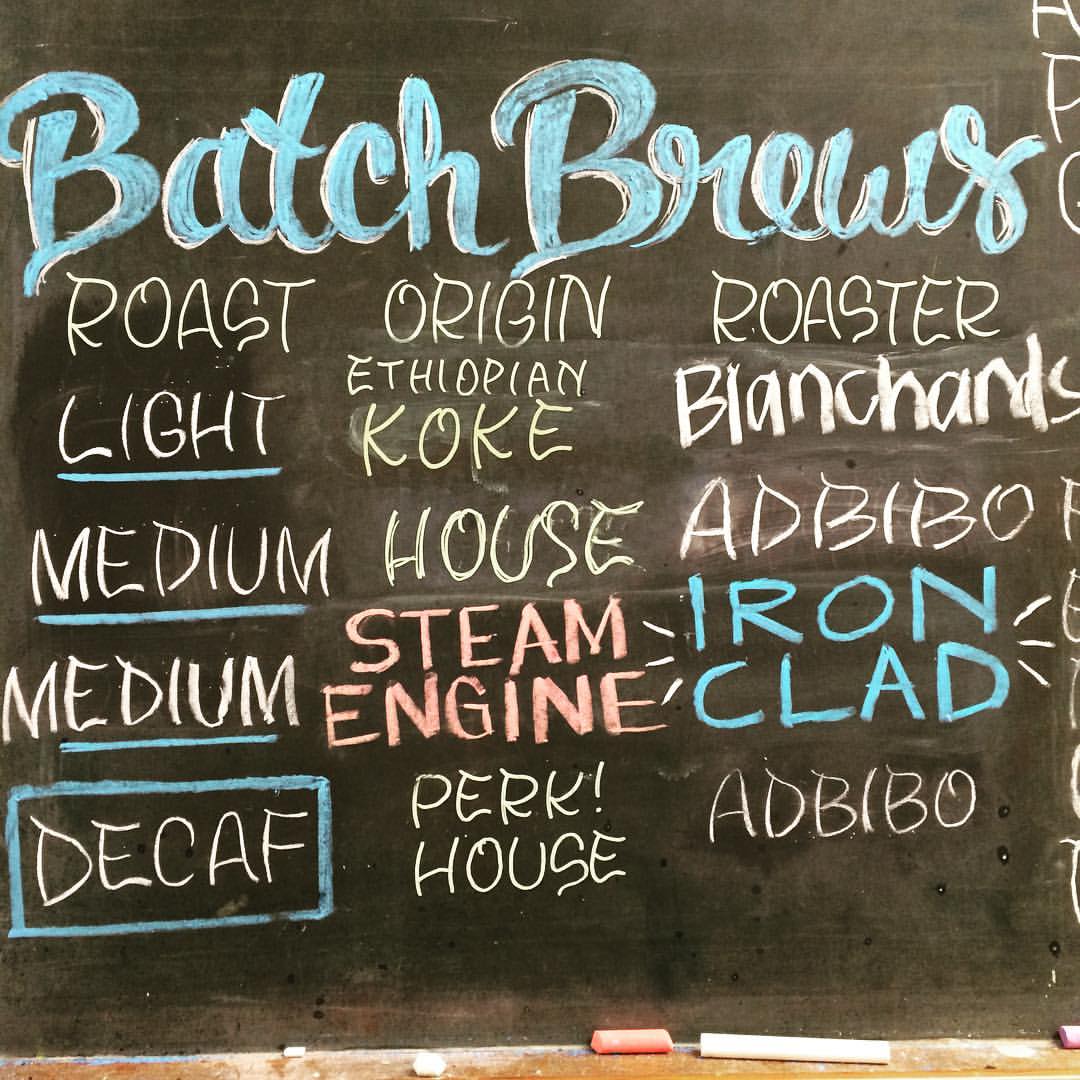 Batch Brews
ROAST ORIGIN ROASTER
LIGHT ETHIOPIAN KOKE Blanchards
MEDIUM HOUSE ADBIBO
MEDIUM STEAM ENGINE IRON CLAD
DECAF PERK! HOUSE ADBIBO